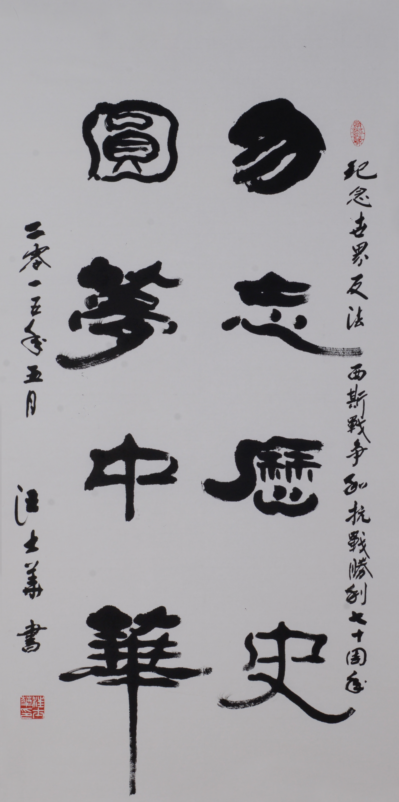 紀念世界反法西斯戰爭和抗戰勝利七十周年
勿忘歷史
圓夢中華
二零一五年五月 汪書